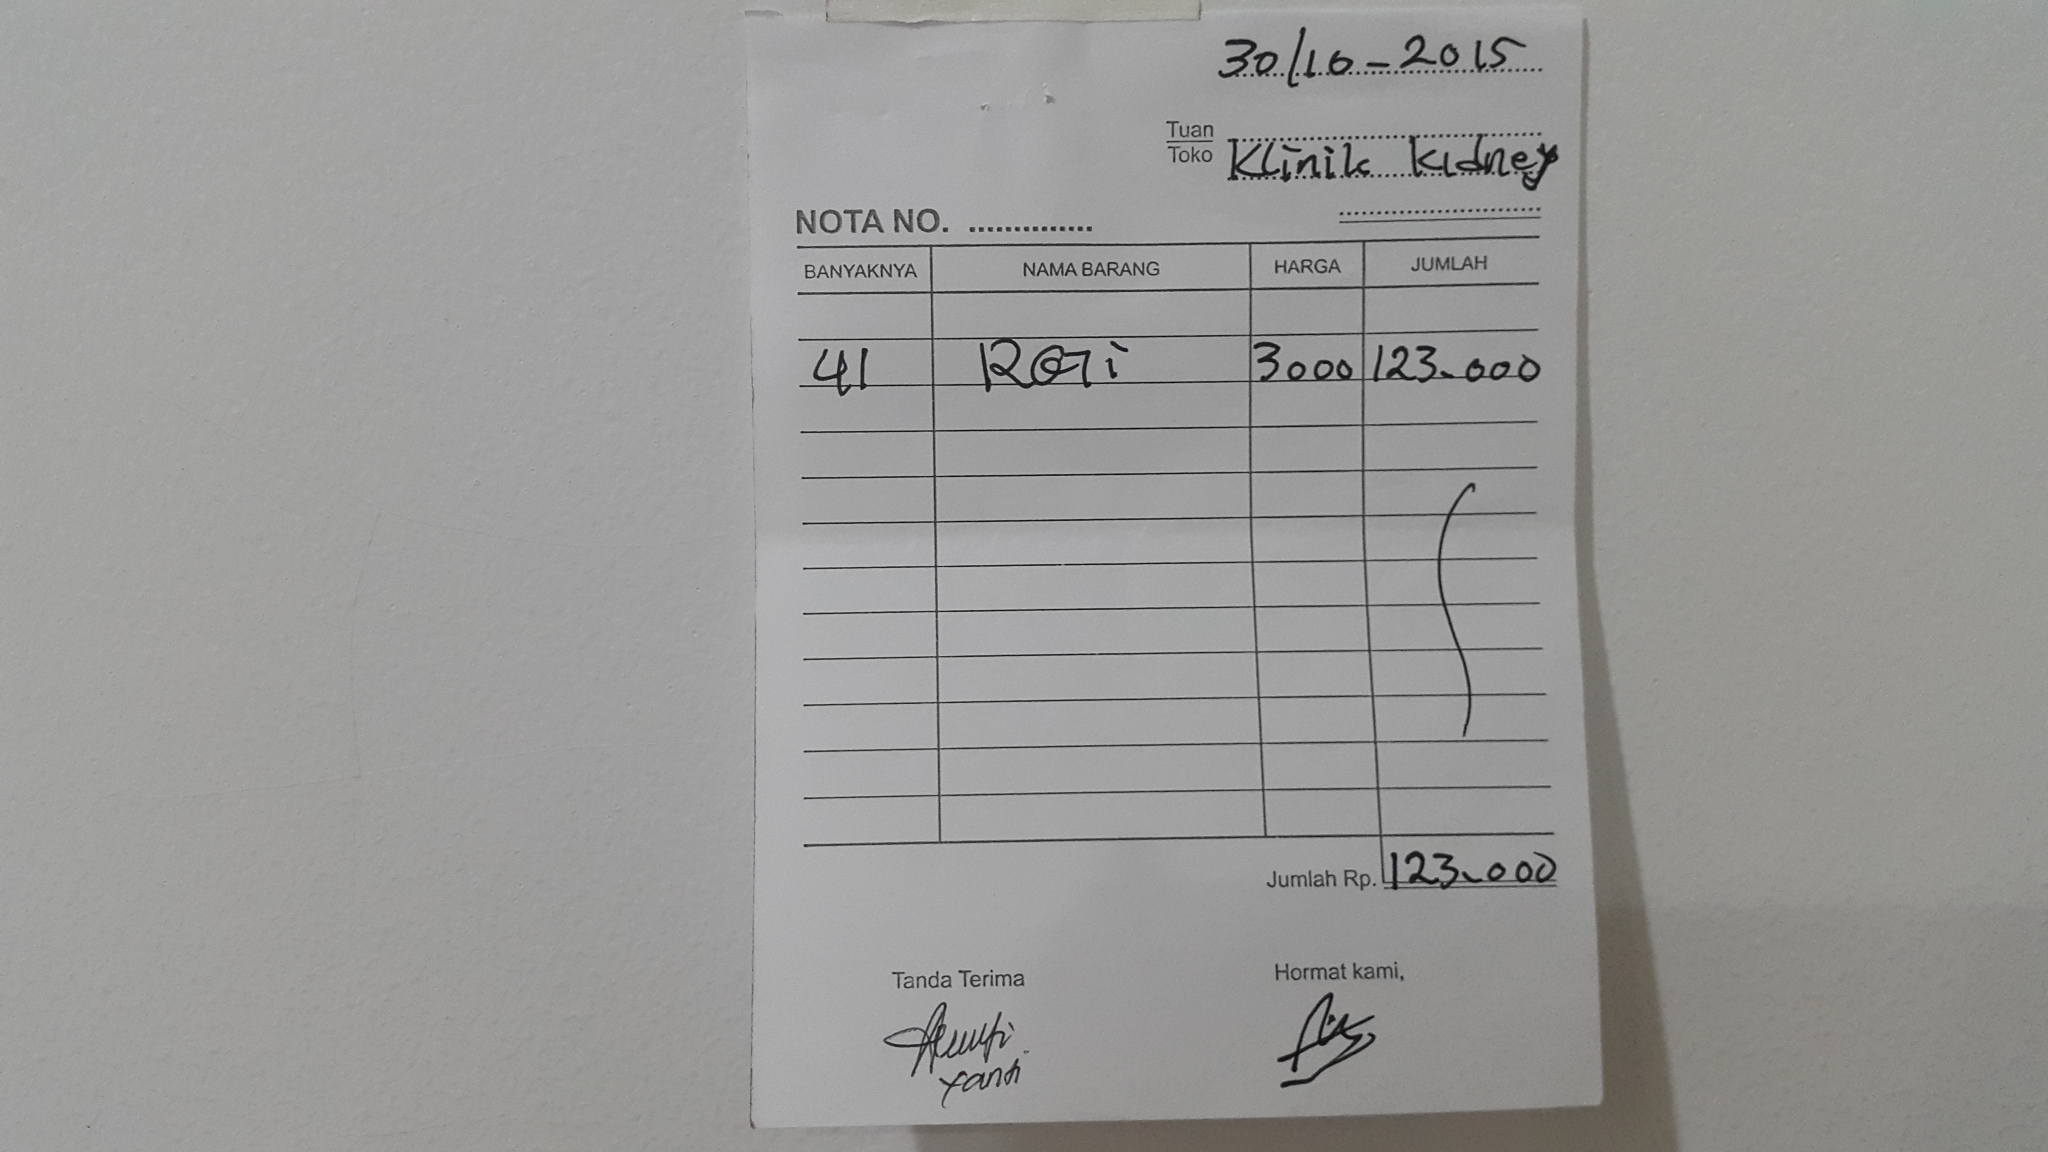 30/10-2015
Tuan
Toko Klinik Kidney
NOTA NO. ...............
BANYAKNYA NAMA BARANG HARGA JUMLAH
41 ROTi 3000 123.000
Jumlah Rp. 123.000
Tanda Terima Hormat kami,